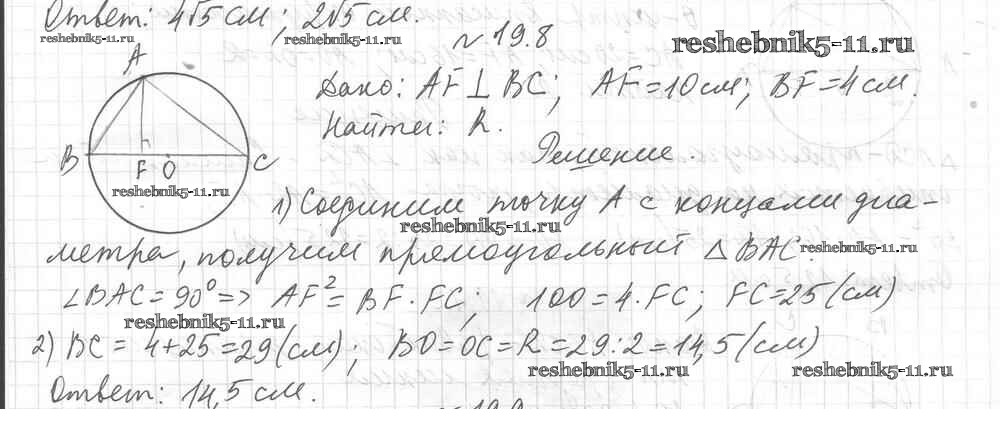 Ответ: 4√5 см; 2√5 см.
reshebnik5-11.ru reshebnik5-11.ru
№ 19.8
reshebnik5-11.ru
A
Дано: AF ⊥ BC; AF = 10 см; BF = 4 см.
Найти: R.
B F O C
Решение.
reshebnik5-11.ru
1) Соединим точку A с концами диа-
reshebnik5-11.ru
метра, получим прямоугольный △ BAC.
reshebnik5-11.ru
∠BAC = 90° => AF² = BF · FC; 100 = 4 · FC; FC = 25 (см)
reshebnik5-11.ru
2) BC = 4 + 25 = 29 (см); BO = OC = R = 29 : 2 = 14,5 (см)
reshebnik5-11.ru reshebnik5-11.ru
Ответ: 14,5 см.